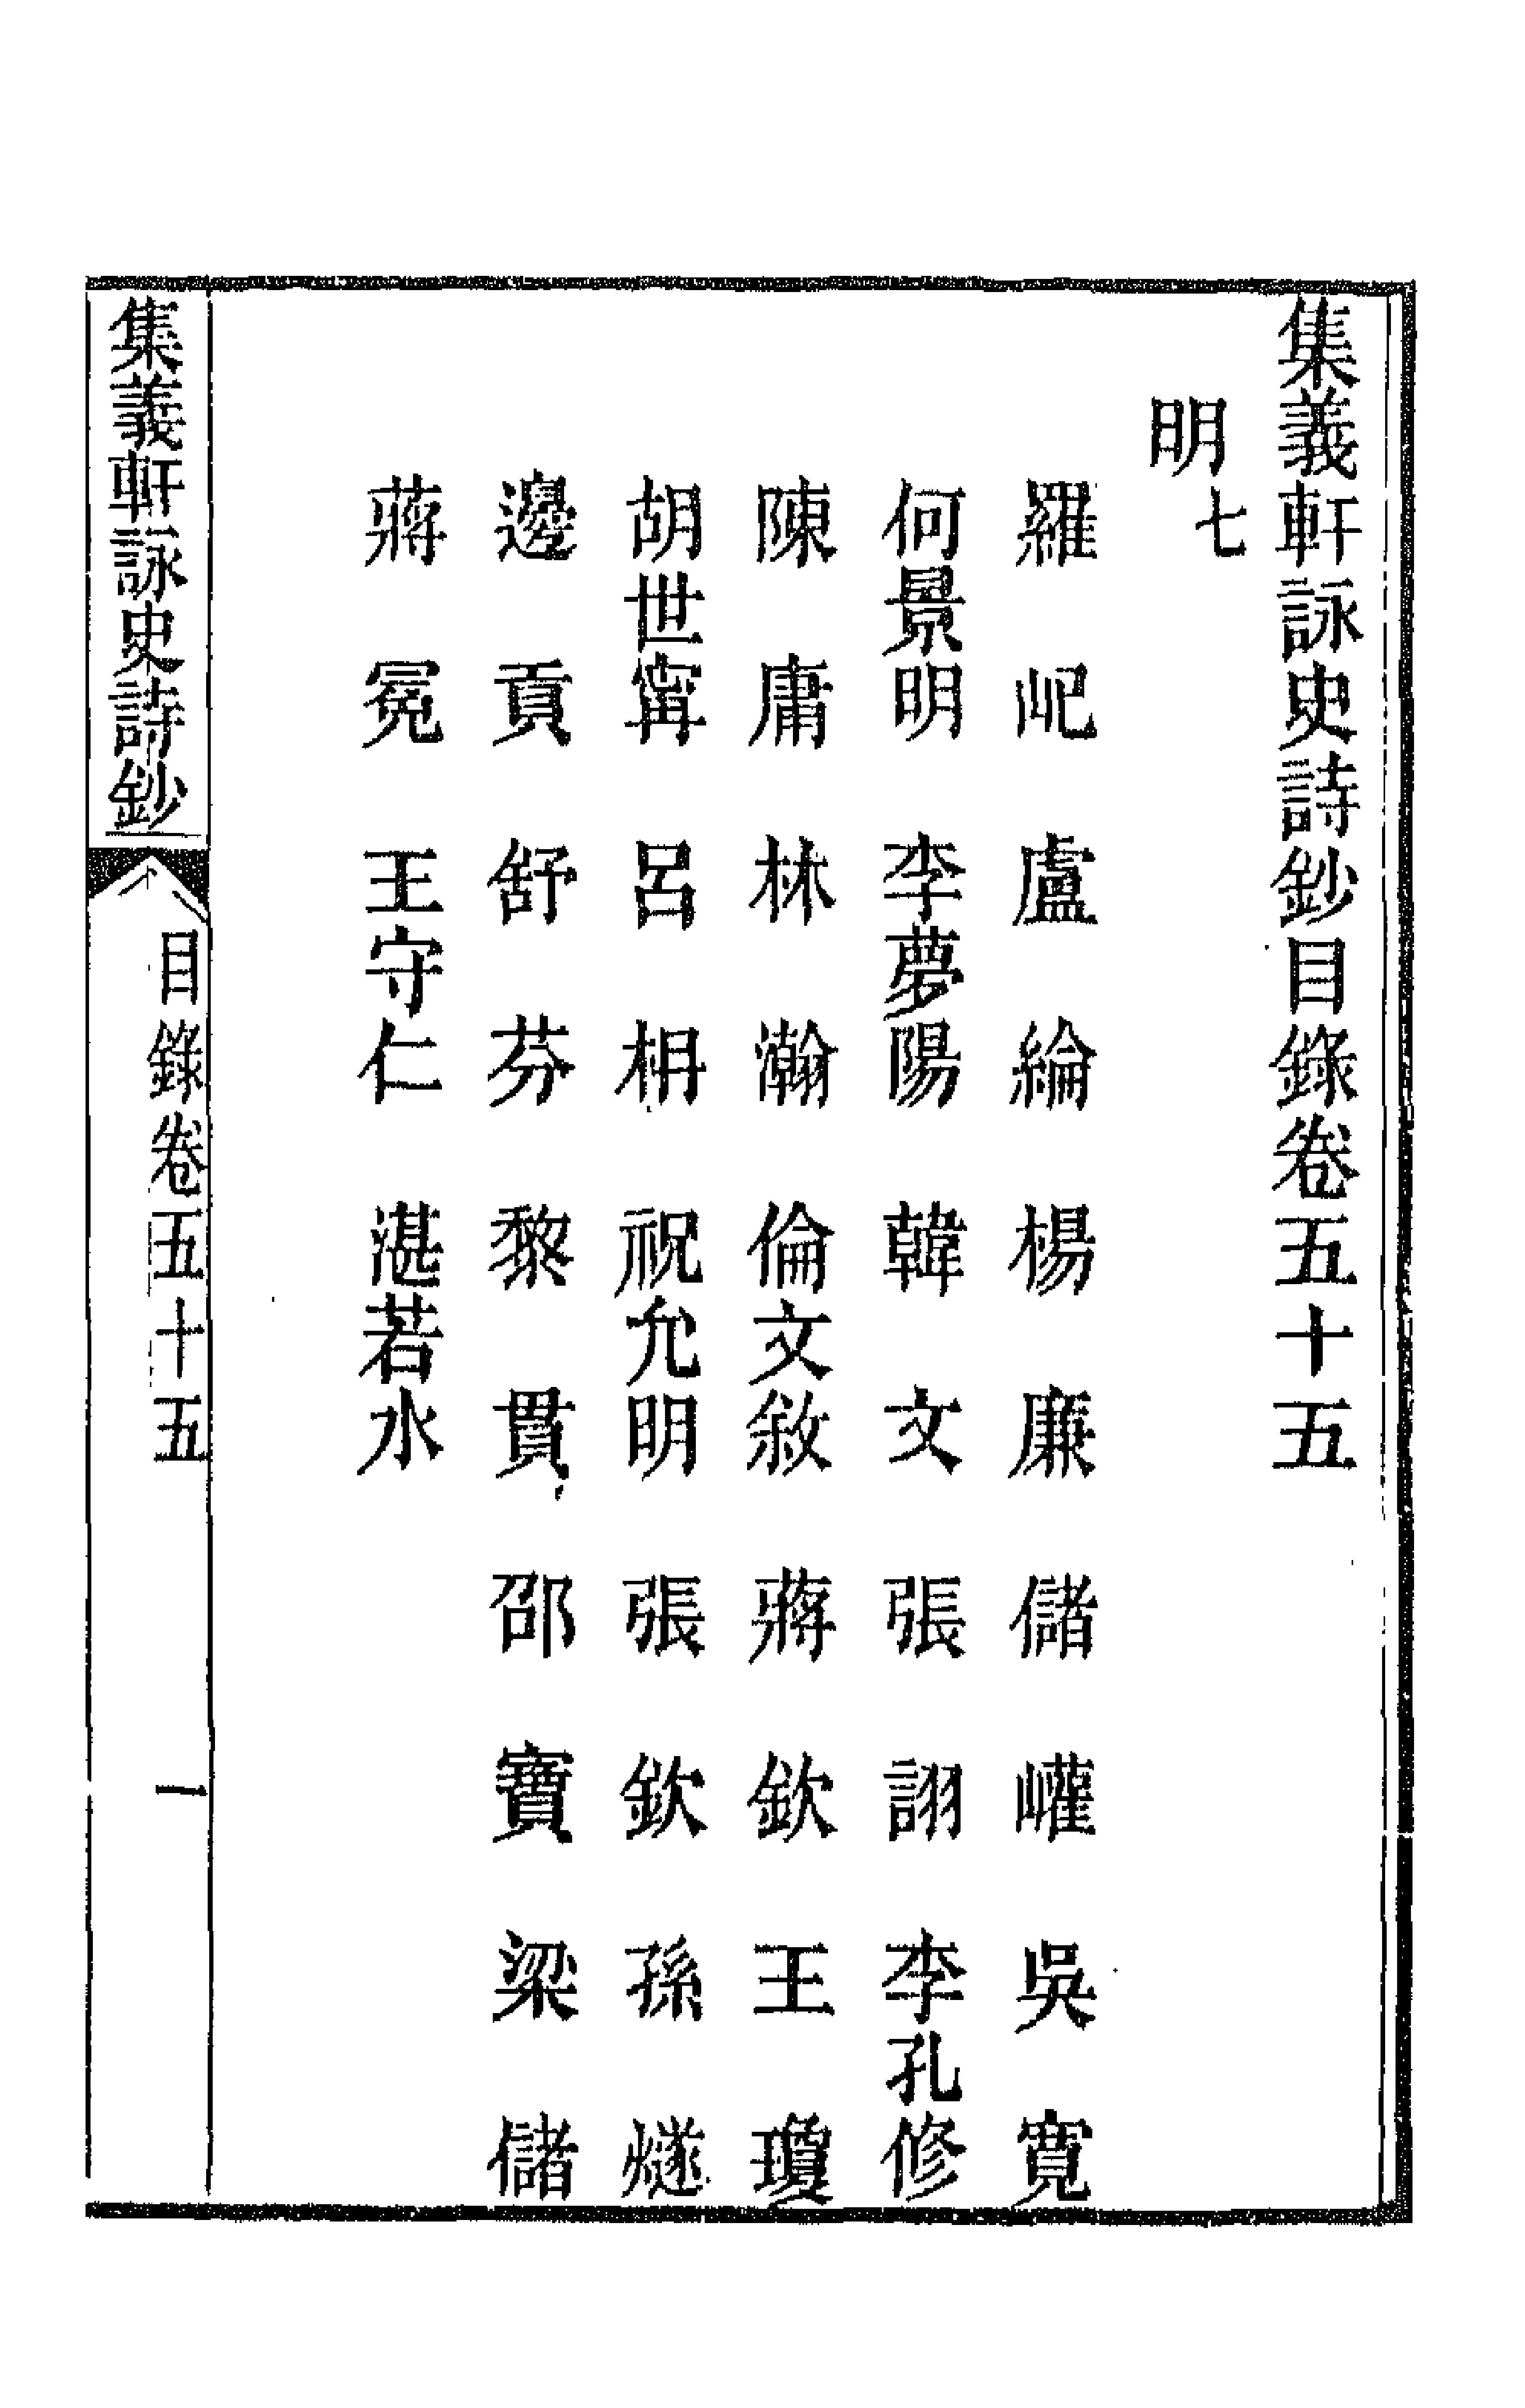 集義軒詠史詩鈔目錄卷五十五
明七
羅 𡵺 盧 綸 楊 廉 儲 巏 吳 寬
何景明 李夢陽 韓 文 張 詡 李孔修
陳 庸 林 瀚 倫文敘 蔣 欽 王 瓊
胡世甯 呂 柟 祝允明 張 欽 孫 燧
邊 貢 舒 芬 黎 貫 邵 寶 梁 儲
蔣 冕 王守仁 湛若水
集義軒詠史詩鈔 目錄卷五十五 一